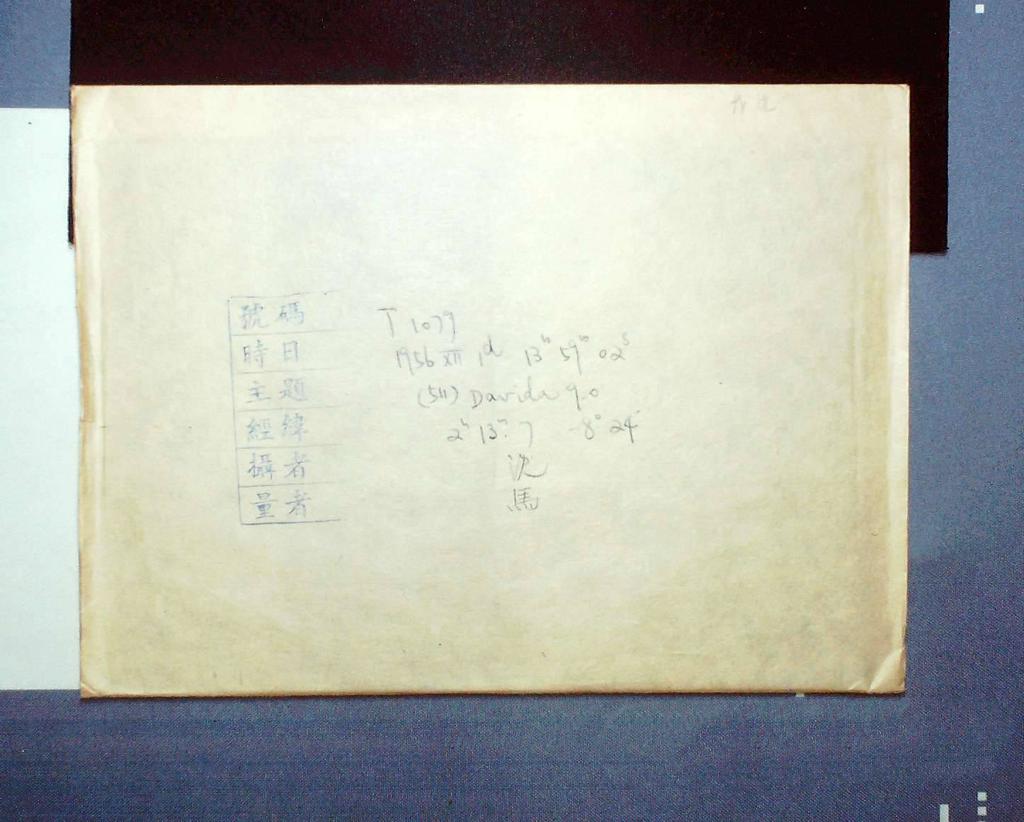 號碼 T 1079
時日 1956 XII 1d 13h 59m 02s
主題 (511) Davida 9.0
經緯 2h 13m.7 -8° 24'
攝者 沈
量者 馬